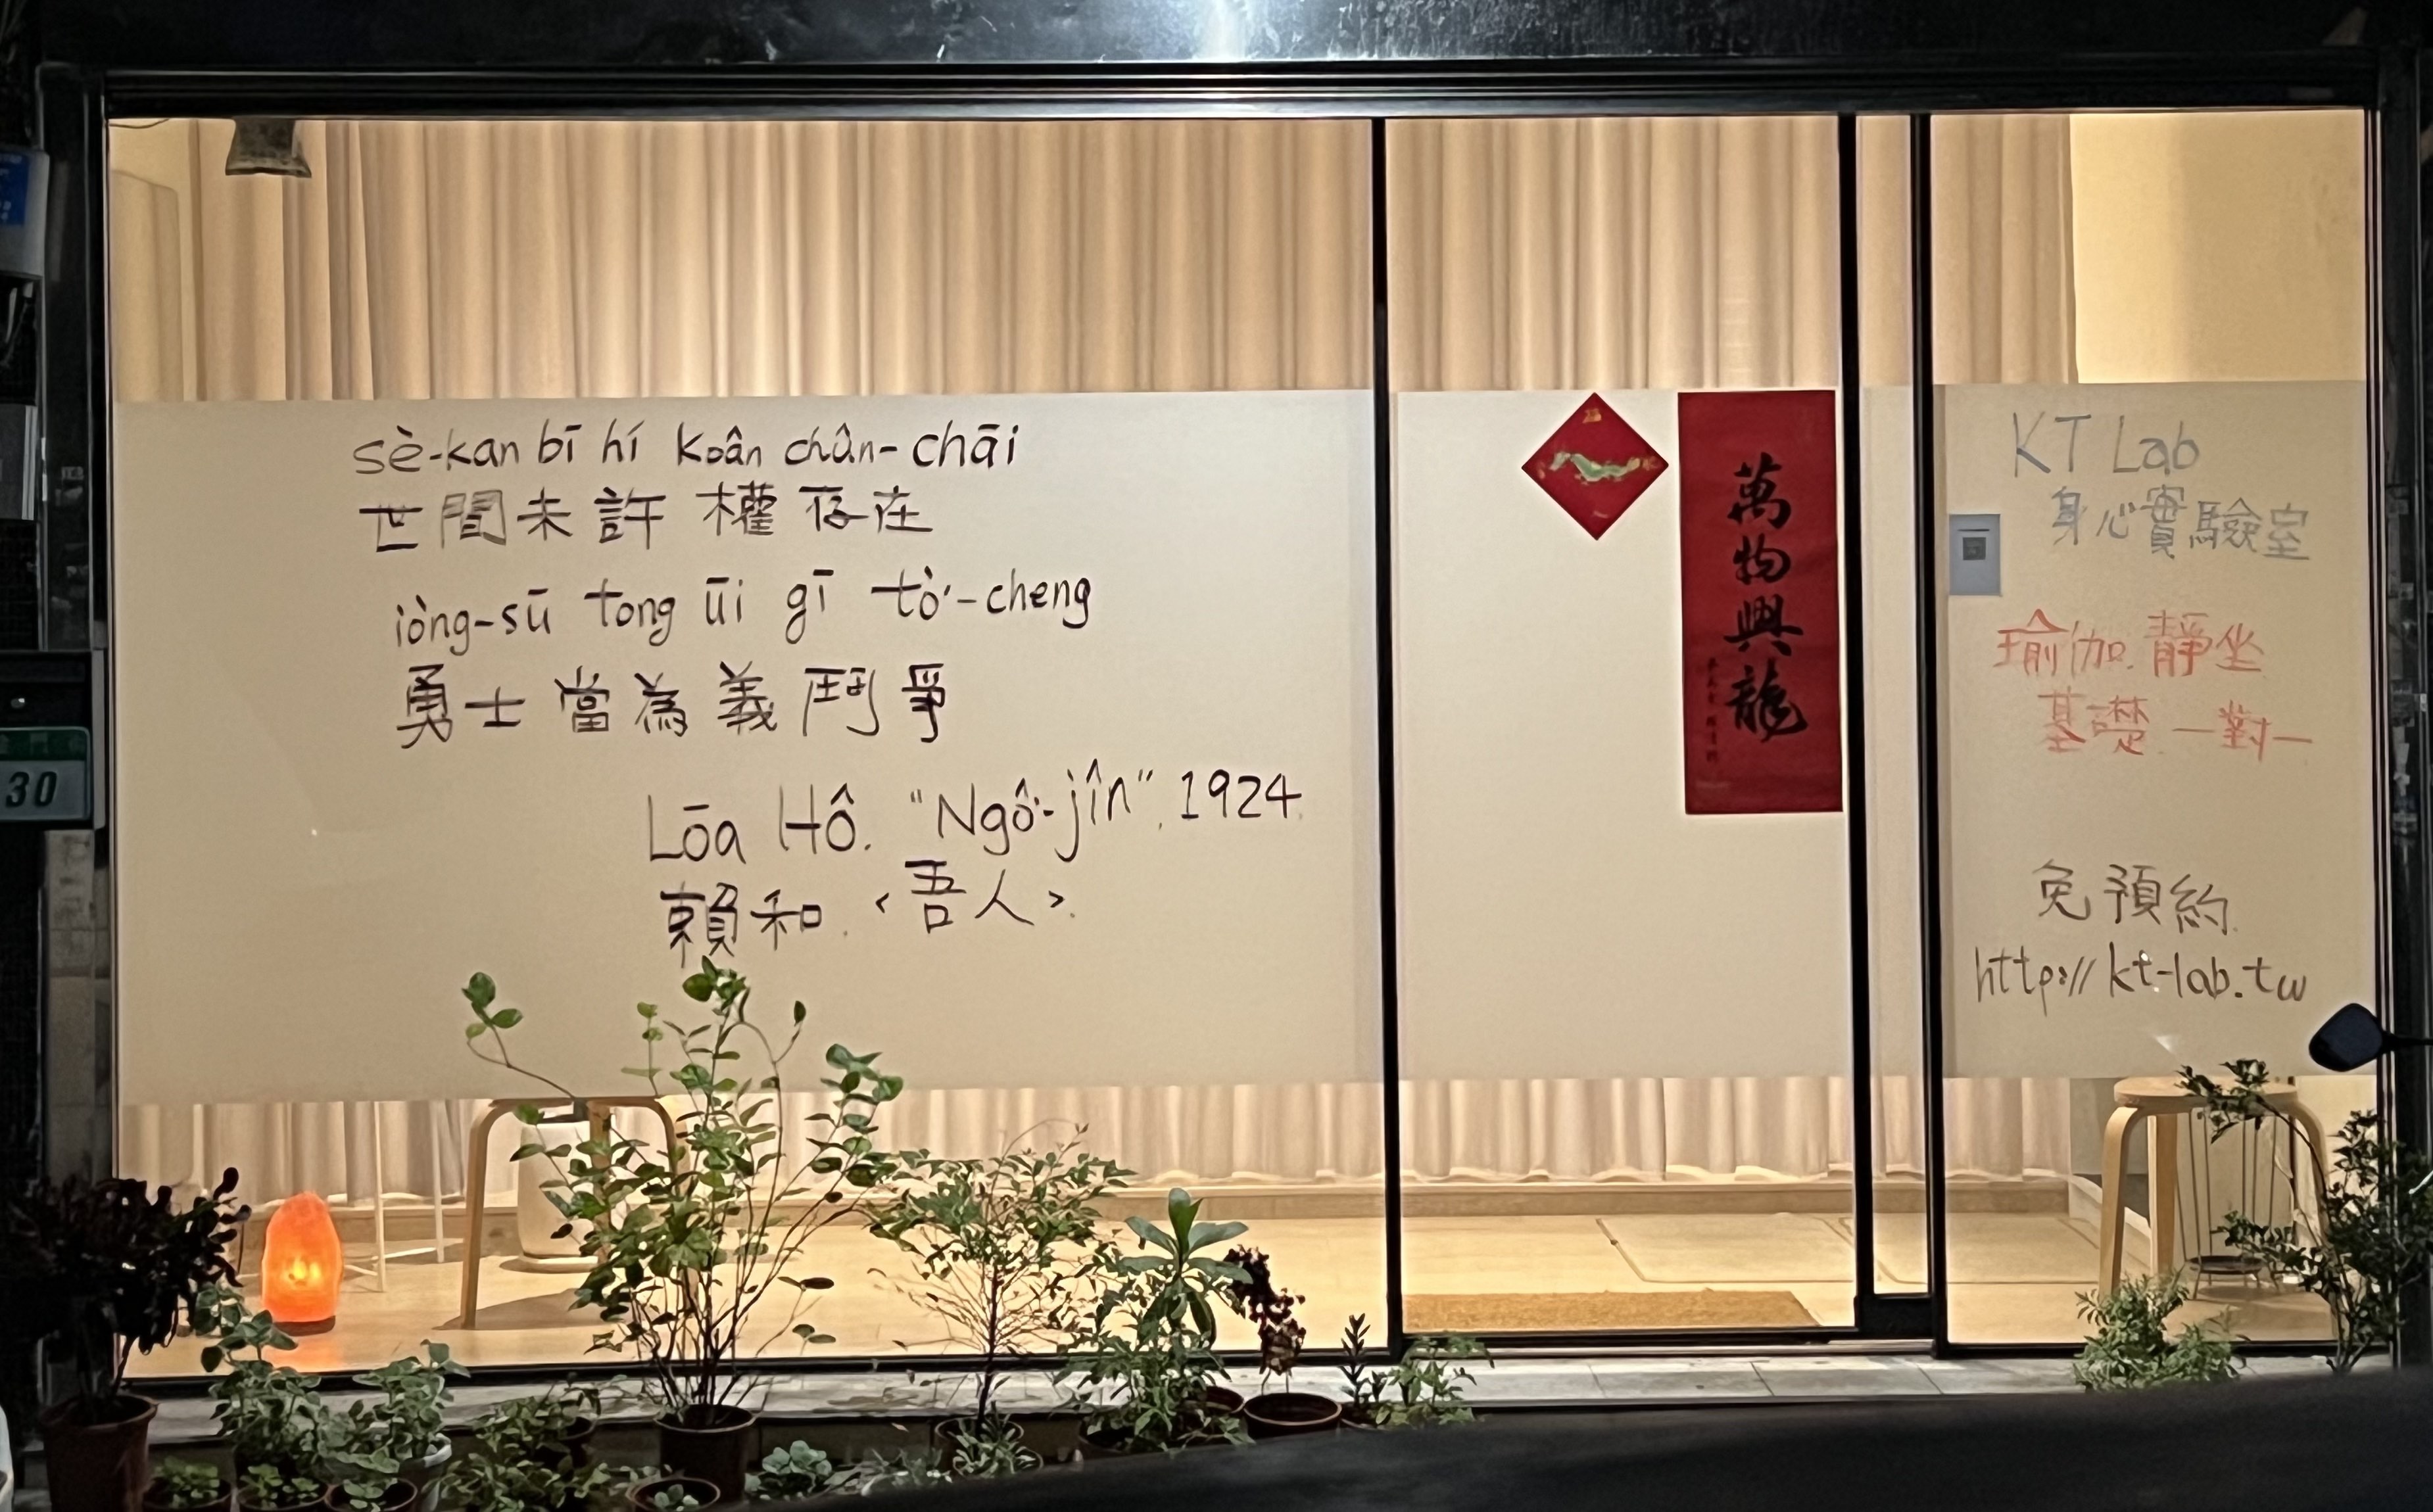 sè-kan bī hí koân chûn-chāi
世間未許權存在
iòng-sū tong ūi gī tò͘-cheng
勇士當為義鬥爭
Lōa Hô. "Ngô͘-jîn", 1924.
賴和.〈吾人〉.
萬物興龍
KT Lab
身心實驗室
瑜伽.靜坐
基礎.一對一
免預約.
http://kt-lab.tw
30